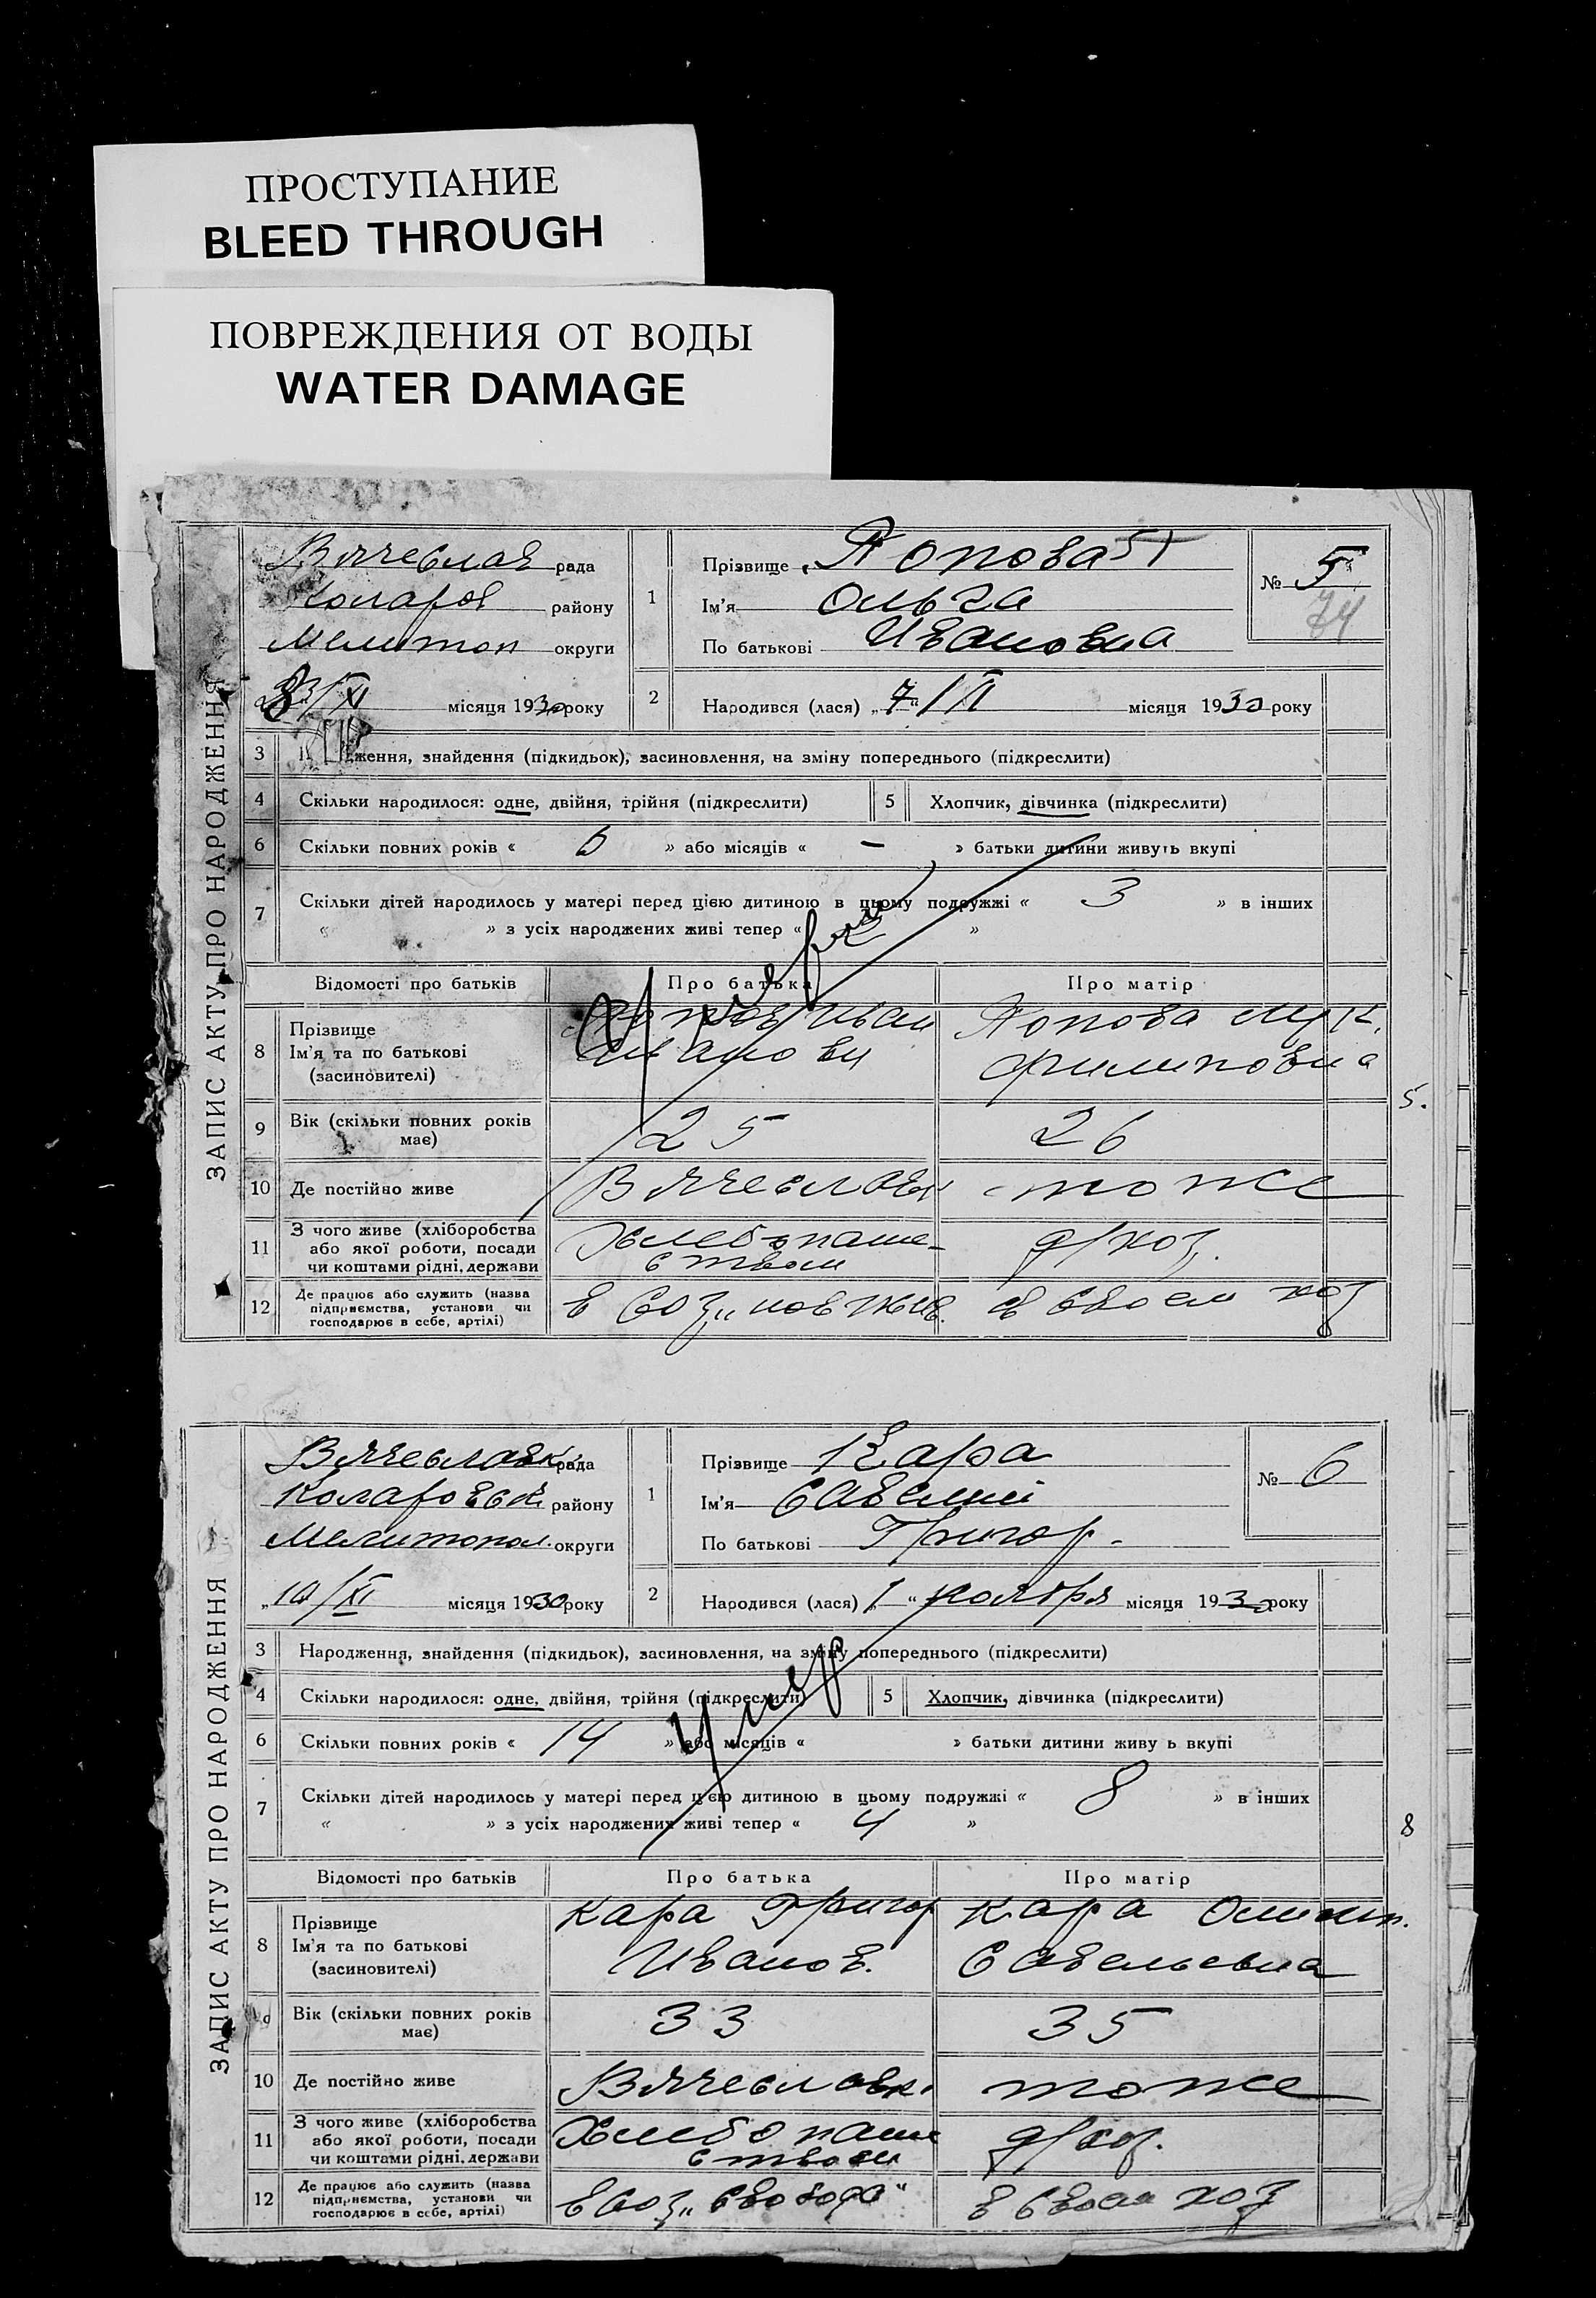 ПРОСТУПАНИЕ
BLEED THROUGH
ПОВРЕЖДЕНИЯ ОТ ВОДЫ
WATER DAMAGE
ЗАПИС АКТУ ПРО НАРОДЖЕННЯ
Вячеслав рада
Коларов району
Мелитоп округи
місяця 1930 року
1 Прізвище Попова
Ім'я Ольга
По батькові Ивановна
№ 5
74
2 Народився (лася) „7“/XI місяця 1930 року
3 дження, знайдення (підкидьок), засиновлення, на зміну попереднього (підкреслити)
4 Скільки народилося: одне, двійня, трійня (підкреслити) 5 Хлопчик, дівчинка (підкреслити)
6 Скільки повних років « » або місяців « – » батьки дитини живуть вкупі
7 Скільки дітей народилось у матері перед цією дитиною в цьому подружжі « 3 » в інших
« » з усіх народжених живі тепер « »
Відомості про батьків Про батька Про матір
8 Прізвище Ім'я та по батькові (засиновителі)
Попов Иван Попова
Иванови Филиповна
5.
9 Вік (скільки повних років має) 25 26
10 Де постійно живе Вячеславк тоже
11 З чого живе (хліборобства або якої роботи, посади чи коштами рідні, держави
Хлебопаше- д/хоз.
ством
12 Де працює або служить (назва підприємства, установи чи господарює в себе, артілі)
в Соз „нов жив. в своем хоз
ЗАПИС АКТУ ПРО НАРОДЖЕННЯ
Вячеславк рада
Коларовск району
Мелитопол. округи
„10/XI місяця 1930 року
1 Прізвище Кара
Ім'я Савелий
По батькові Григор.
№ 6
2 Народився (лася) „1“ ноября місяця 1930 року
3 Народження, знайдення (підкидьок), засиновлення, на зміну попереднього (підкреслити)
Умер
4 Скільки народилося: одне, двійня, трійня (підкреслити) 5 Хлопчик, дівчинка (підкреслити)
6 Скільки повних років « 14 » або місяців « » батьки дитини живу ь вкупі
7 Скільки дітей народилось у матері перед цією дитиною в цьому подружжі « 8 » в інших
« » з усіх народжених живі тепер « 4 »
8
Відомості про батьків Про батька Про матір
8 Прізвище Ім'я та по батькові (засиновителі)
Кара Григор Кара
Иванов. Савельевна
9 Вік (скільки повних років має) 33 35
10 Де постійно живе Вячеславк. тоже
11 З чого живе (хліборобства або якої роботи, посади чи коштами рідні, держави
Хлебопаше д/хоз.
ством
12 Де працює або служить (назва підприємства, установи чи господарює в себе, артілі)
в Соз „Свобода“ в своем хоз